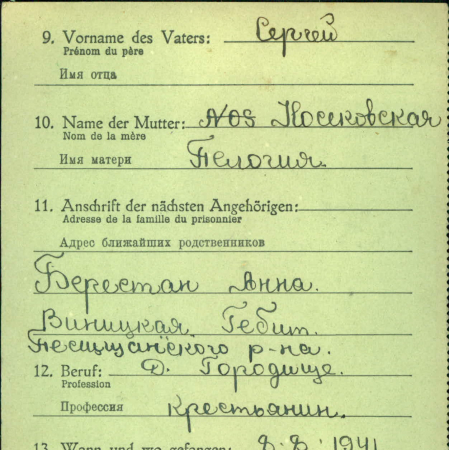 9. Vorname des Vaters: Сергей
Prénom du père
Имя отца
10. Name der Mutter: Носковская
Nom de la mère
Имя матери Пелогия.
11. Anschrift der nächsten Angehörigen:
Adresse de la famille du prisonnier
Адрес ближайших родственников
Берестан Анна.
Виницкая Гебит.
р-на.
12. Beruf: Д. Городище.
Profession
Профессия Крестьянин.
13. Wann und wo gefangen: 8.8.1941